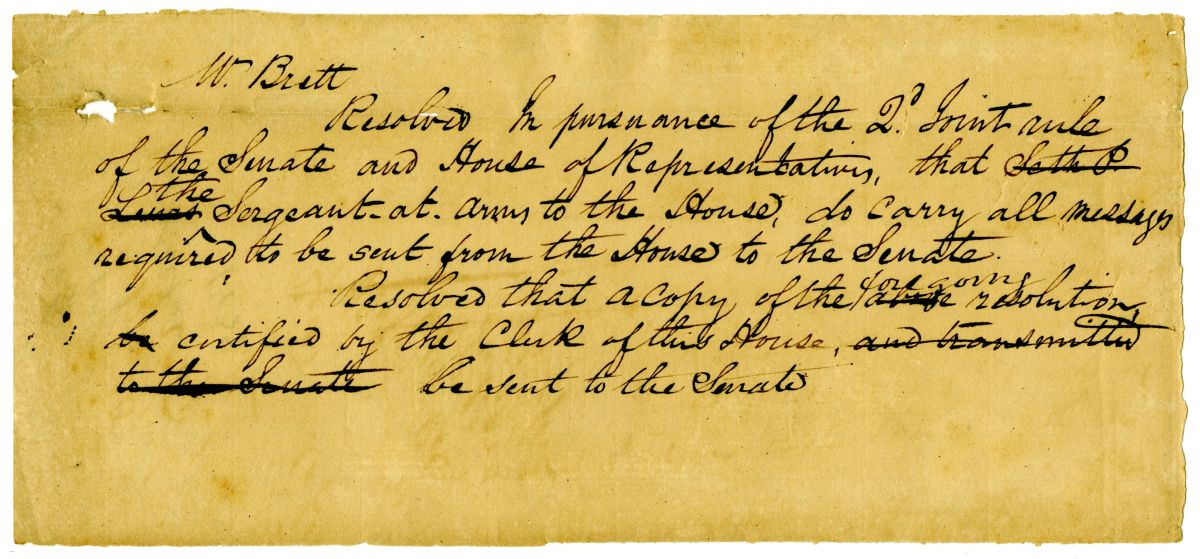 Mr. Brett
Resolved In pursuance of the 2d. Joint rule
of the Senate and House of Representatives, that Seth P.
Lewis the Sergeant-at-arms to the House, do carry all messages
required to be sent from the House to the Senate.
Resolved that a copy of the above foregoing resolution,
be certified by the Clerk of this House, and transmitted
to the Senate be sent to the Senate